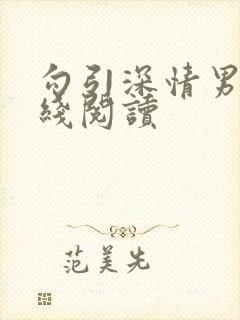 勾引深情男
綫閱讀
范美先